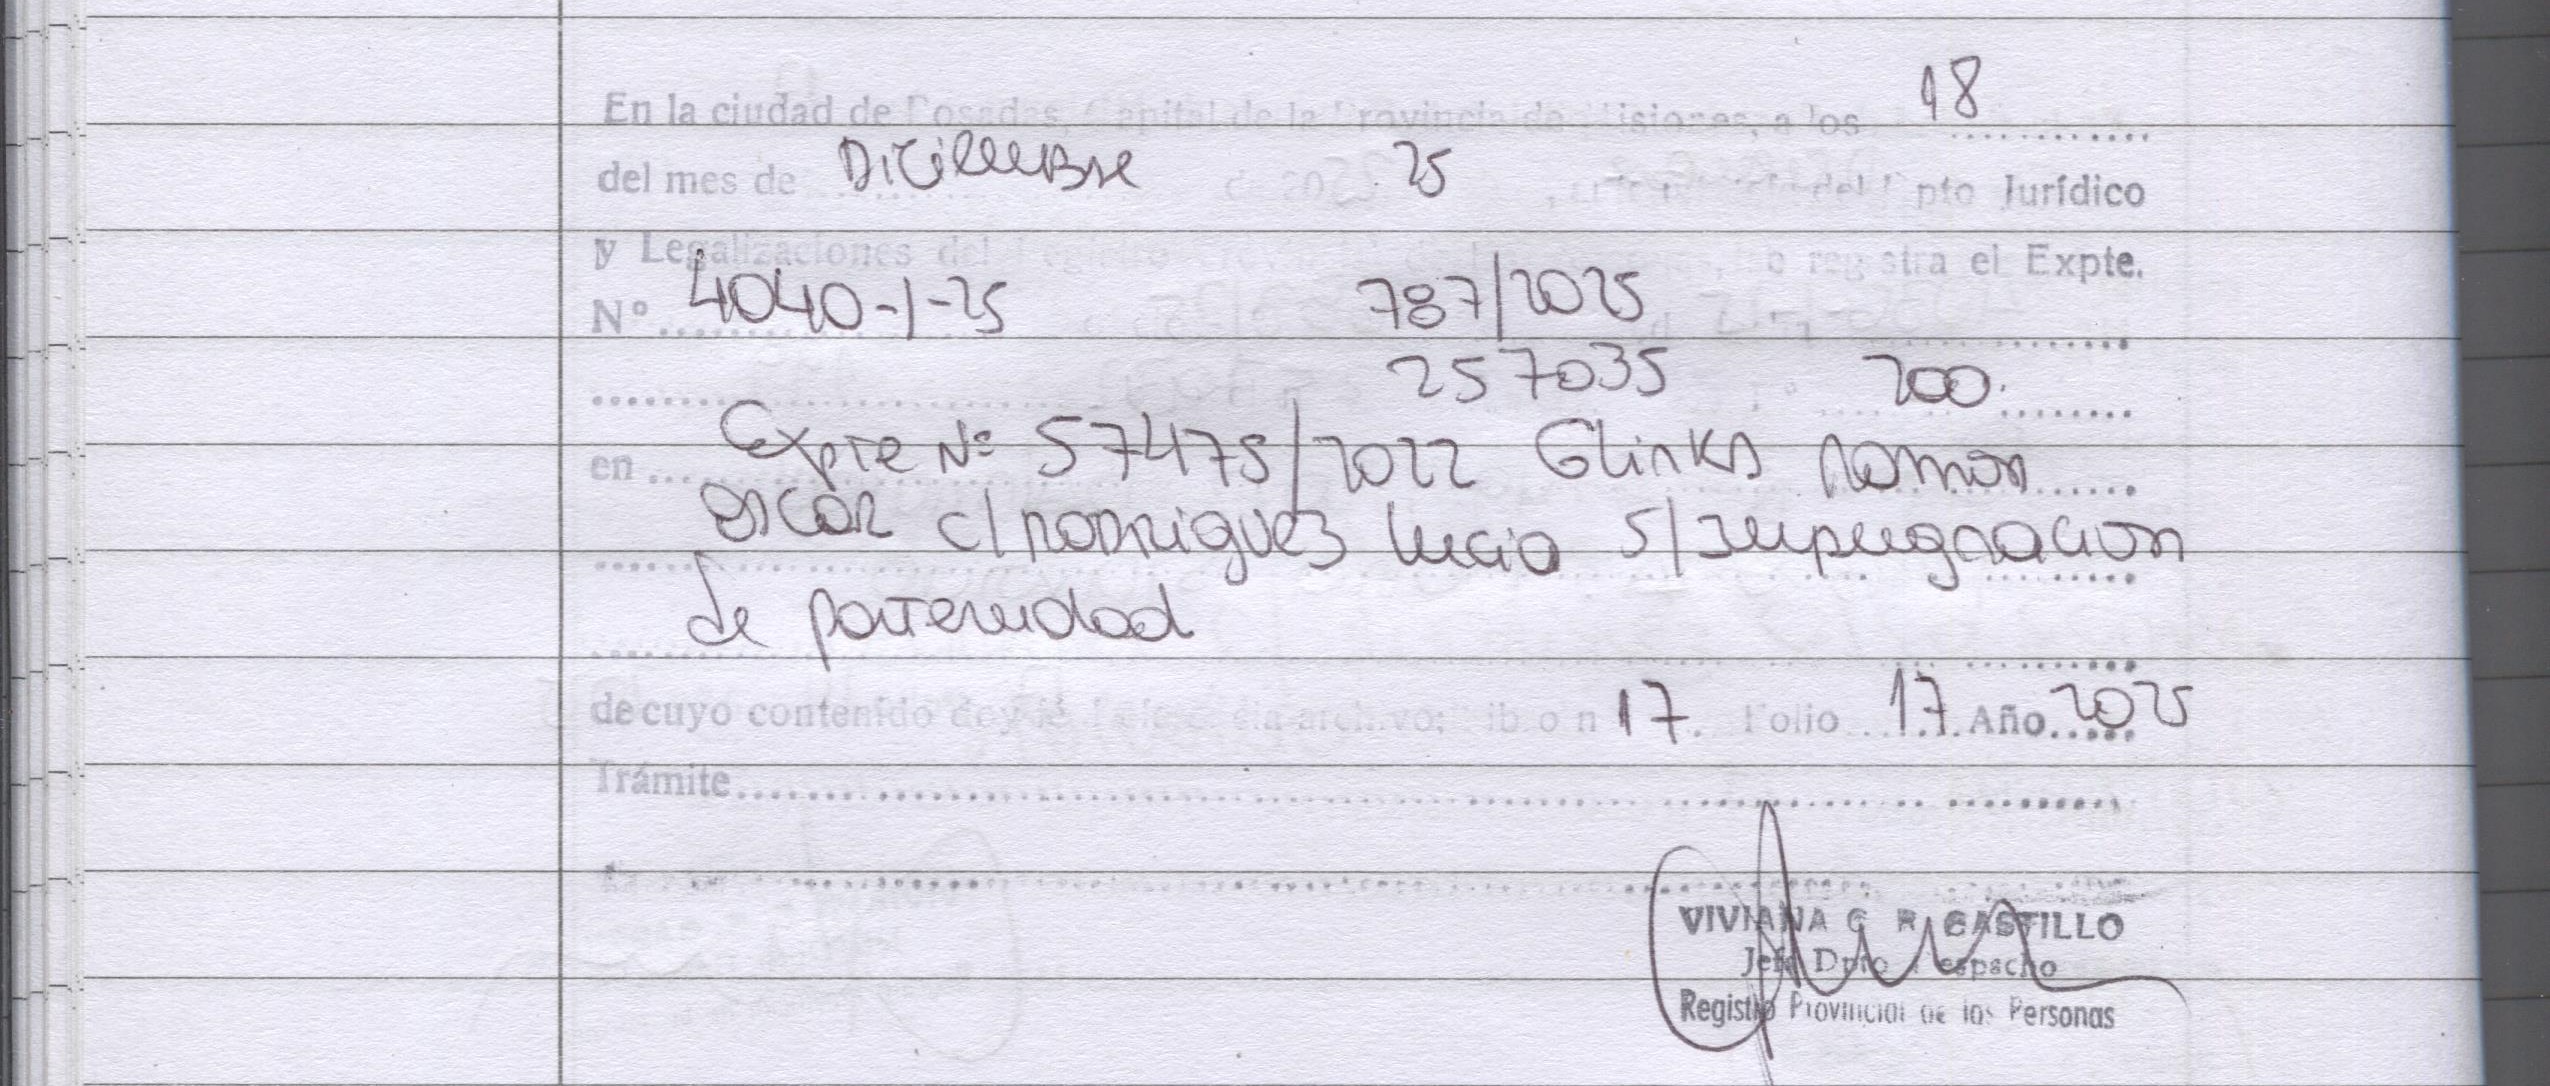 En la ciudad de Posadas, Capital de la Provincia de Misiones, a los 18
del mes de Diciembre 25 Dpto Jurídico
y Legalizaciones del Registro registra el Expte.
Nº 4040-1-25 787/2025
257035 200.
en Expte Nº 57475/2022 Glinka Ramon
oscar c/ Rodriguez Lucia s/ Impugnacion
de paternidad
de cuyo contenido doy fé. archivo: Libro n 17. Folio 17 Año 2025
Trámite
VIVIANA C R CASTILLO
Jefe Dpto Despacho
Registro Provincial de las Personas